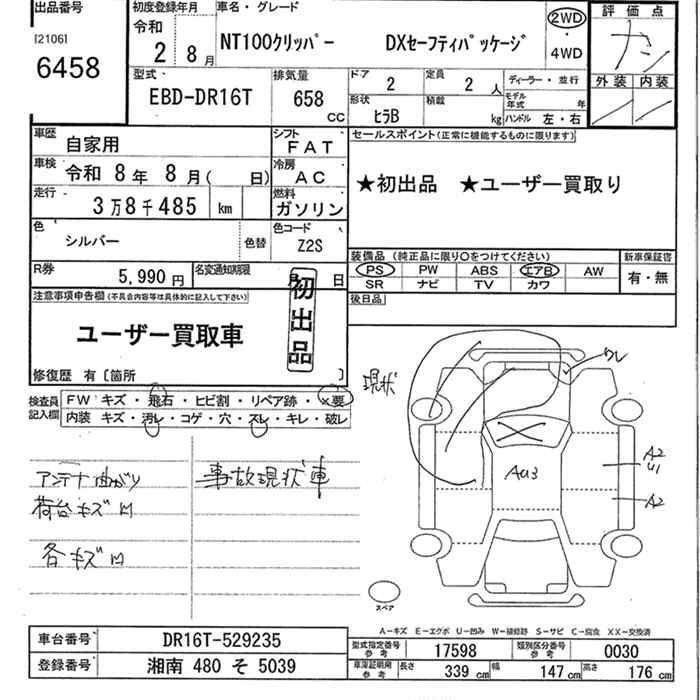 出品番号
[2106]
6458
初度登録年月
令和
2 8月
車名・グレード
NT100クリッパー DXセーフティパッケージ
2WD
・
4WD
評価点
外装 内装
型式
EBD-DR16T
排気量
658
CC
ドア
2
定員
2 人
ディーラー・並行
形状
ヒラB
積載
kg
モデル年式 年
ハンドル 左・右
車歴
自家用
シフト
FAT
セールスポイント(正常に機能するものに限ります)
★初出品 ★ユーザー買取り
車検
令和 8年 8月( 日)
冷房
AC
走行
3万8千485 km
燃料
ガソリン
色
シルバー
色替
色コード
Z2S
装備品(純正品に限り○をつけてください)
PS PW ABS エアB AW
SR ナビ TV カワ
新車保証書
有・無
R券
5,990 円
名変通知期限
月 日
後日品
注意事項申告欄(不具合内容等は具体的に記入して下さい)
ユーザー買取車
初出品
修復歴 有〔箇所 〕
検査員
記入欄
FW キズ・飛石・ヒビ割・リペア跡・×要
内装 キズ・汚レ・コゲ・穴・スレ・キレ・破レ
現状
ワレ
AU3
A2
U1
A2
アンテナ曲がり
荷台キズ凹
各キズ凹
事故現状車
スペア
A-キズ E-エクボ U-凹み W-補修跡 S-サビ C-腐食 XX-交換済
車台番号
DR16T-529235
登録番号
湘南 480 そ 5039
型式指定番号
参考
17598
類別区分番号
参考
0030
車庫証明用
参考
長さ
339 cm
幅
147 cm
高さ
176 cm